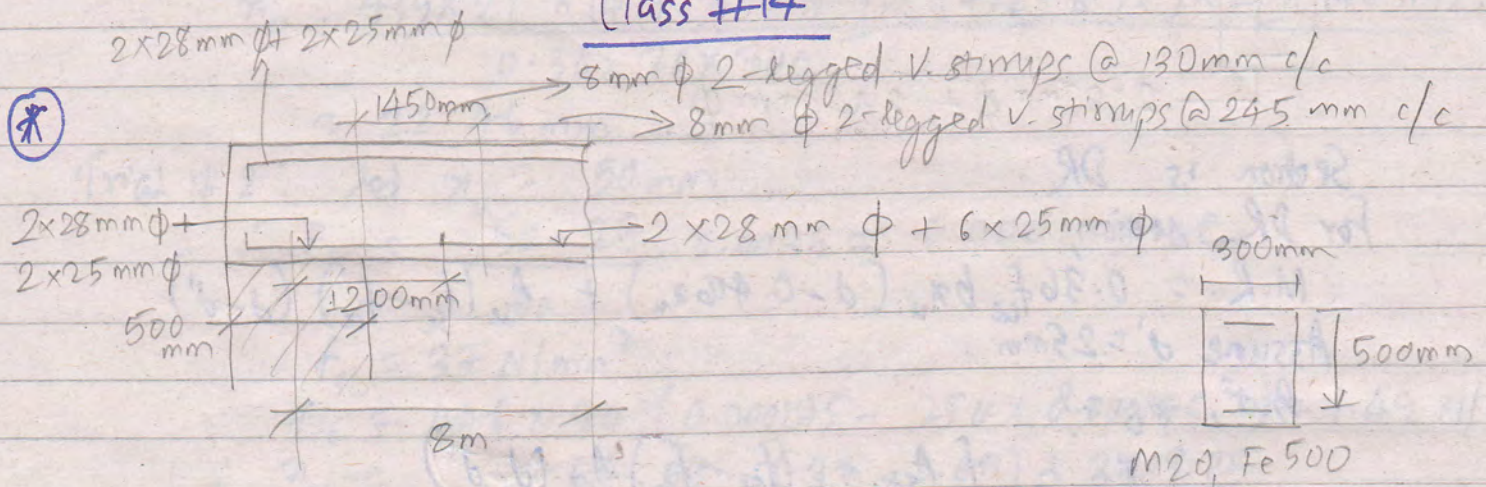 Class #14
2×28mm ϕ + 2×25mm ϕ
8mm ϕ 2-legged V. stirrups @ 130mm c/c
1450mm
8mm ϕ 2-legged V. stirrups @ 245 mm c/c
*
2×28mm ϕ +
2×25mm ϕ
2×28mm ϕ + 6×25mm ϕ
300mm
1200mm
500
mm
500mm
8m
M20, Fe500